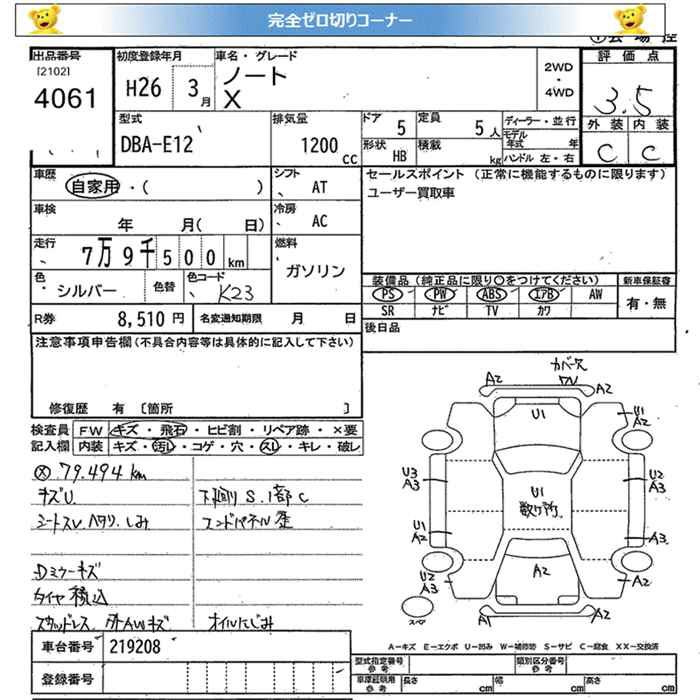 完全ゼロ切りコーナー
出品番号
[2102]
4061
初度登録年月
H26 3月
車名・グレード
ノート
X
2WD
・
4WD
評価点
3.5
外装 内装
C C
型式
DBA-E12
排気量
1200 CC
ドア 5
定員 5人
形状 HB
積載 kg
ディーラー・並行
モデル年式 年
ハンドル 左・右
車歴
自家用・( )
シフト
AT
セールスポイント (正常に機能するものに限ります)
ユーザー買取車
車検
年 月( 日)
冷房
AC
走行
7万9千500km
燃料
ガソリン
色
シルバー
色替
色コード
K23
装備品 (純正品に限り〇をつけてください)
新車保証書
PS PW ABS エアB AW
有・無
SR ナビ TV カワ
R券 8,510円
名変通知期限 月 日
後日品
注意事項申告欄 (不具合内容等は具体的に記入して下さい)
修復歴 有 〔箇所 〕
検査員記入欄
FW キズ・飛石・ヒビ割・リペア跡・×要
内装 キズ・汚レ・コゲ・穴・スレ・キレ・破レ
79.494km
キズU
下廻りS.1部C
シートスレ.ヘタリ.しみ
エンドパネル歪
Dミラーキズ
タイヤ積込
スタッドレス
オイルにじみ
カバー欠
A2 A2
U1
U1
A2
U3
A3
A3
U1
散リケ所
U1
A2
A3
U2
A3
A2
A1 A2
スペア
A-キズ E-エクボ U-凹み W-補修跡 S-サビ C-腐食 XX-交換済
車台番号 219208
登録番号
型式指定番号
参考
類別区分番号
参考
車庫証明用
参考
長さ cm
幅 cm
高さ cm